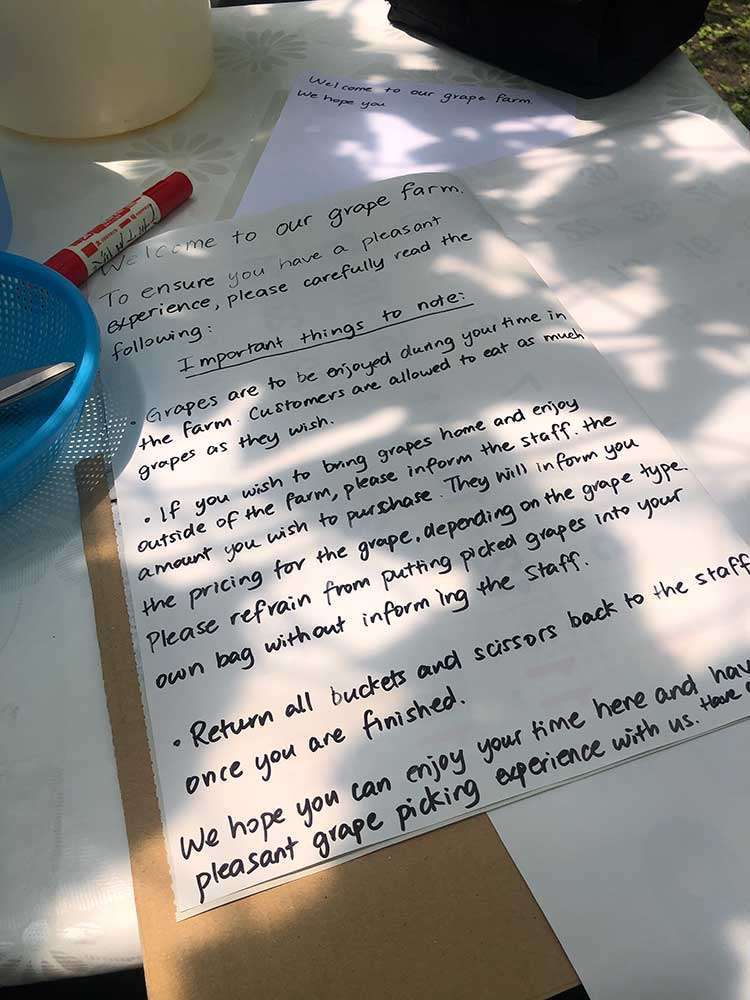 Welcome to our grape farm.
We hope you
Welcome to our grape farm.
To ensure you have a pleasant
experience, please carefully read the
following:
Important things to note:
• Grapes are to be enjoyed during your time in
the farm. Customers are allowed to eat as much
grapes as they wish.
• If you wish to bring grapes home and enjoy
outside of the farm, please inform the staff. the
amount you wish to purchase. They will inform you
the pricing for the grape, depending on the grape type.
Please refrain from putting picked grapes into your
own bag without informing the staff.
• Return all buckets and scissors back to the staff
once you are finished.
We hope you can enjoy your time here and have
pleasant grape picking experience with us. Have